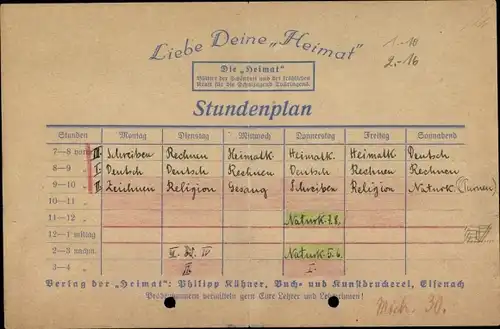 Liebe Deine „Heimat"
1.-10
2.-16
Die „Heimat"
Blätter der Schönheit und der fröhlichen
Kraft für die Schuljugend Thüringens.
Stundenplan
Stunden Montag Dienstag Mittwoch Donnerstag Freitag Sonnabend
7—8 vorm. II Schreiben Rechnen Heimatk. Heimatk. Heimatk. Deutsch
8—9 „ I. Deutsch Deutsch Rechnen Deutsch Rechnen Rechnen
9—10 „ II. Zeichnen Religion Gesang Schreiben Religion Naturk. (Turnen)
10—11 „
11—12 „ Naturk. 7.8.
12—1 mittag
2—3 nachm. IV Naturk. 5.6.
3—4 „ I.
Verlag der „Heimat": Philipp Kühner, Buch- und Kunstdruckerei, Eisenach
Probenummern vermitteln gern Eure Lehrer und Lehrerinnen!
Mich. 30.